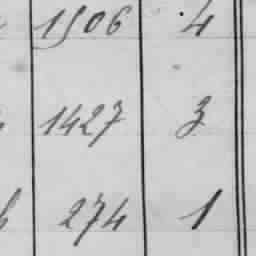 1506 4
1427 3
274 1